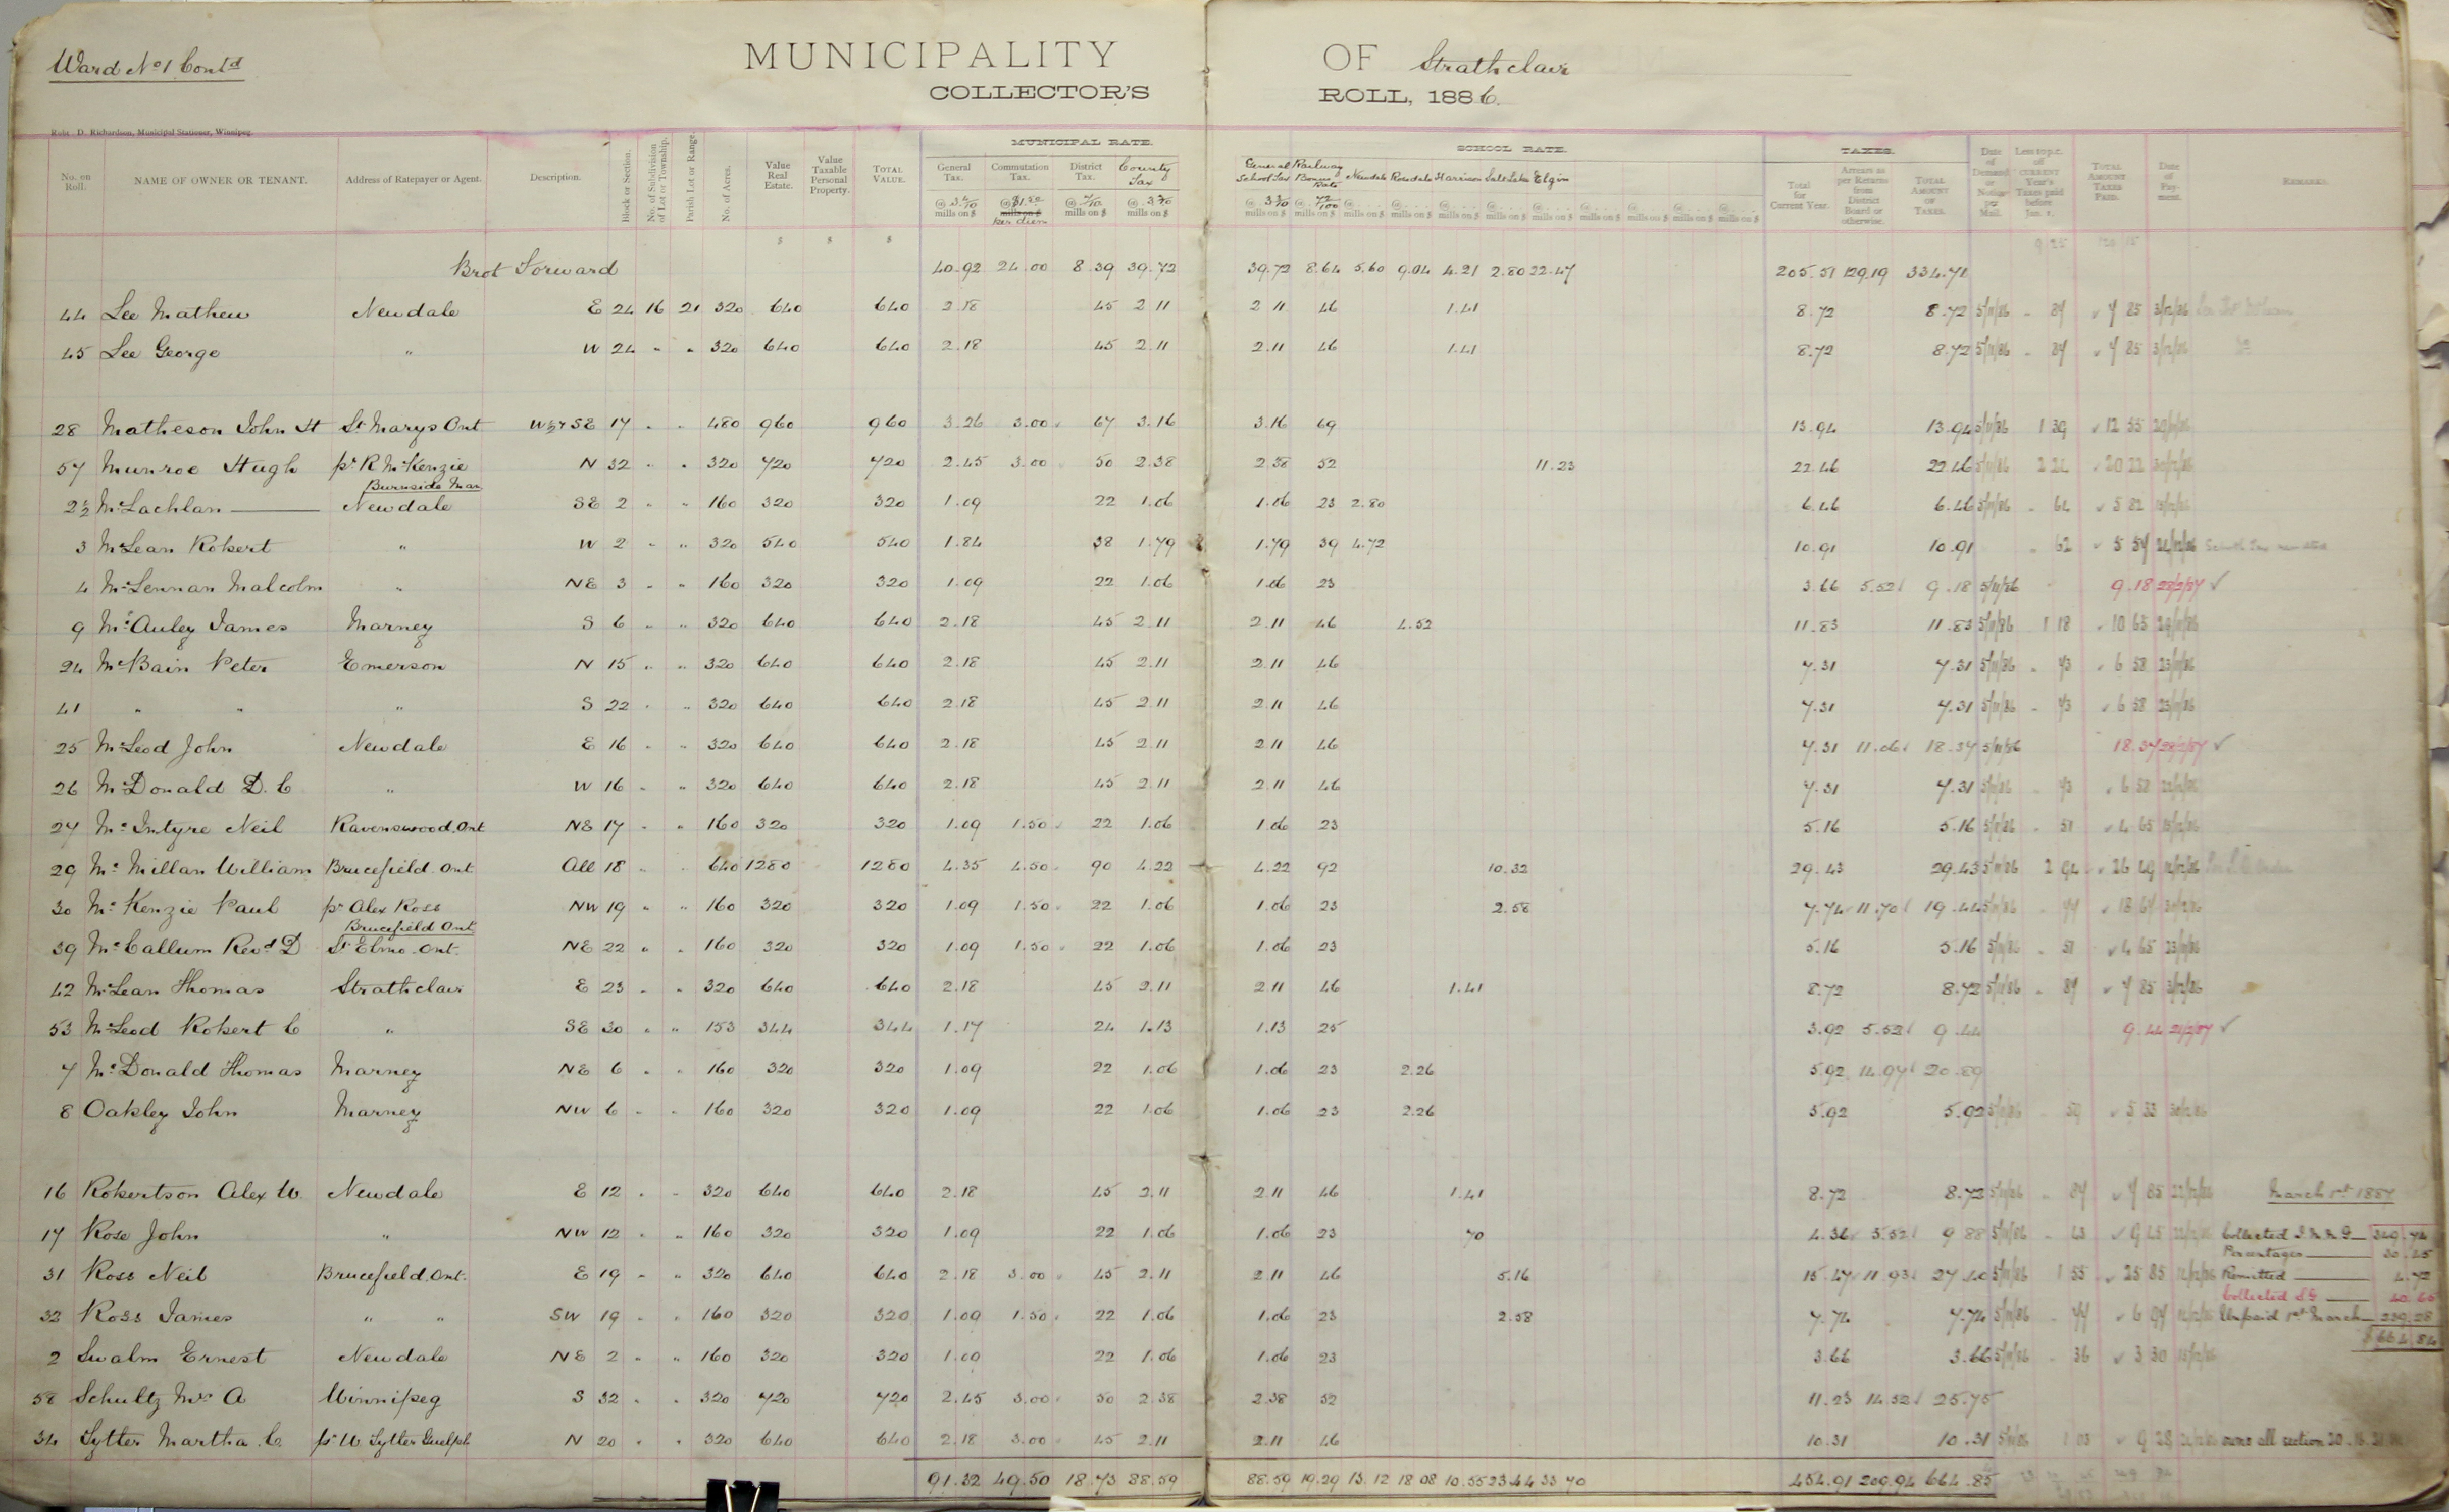 Ward No 1 Contd
MUNICIPALITY OF Strathclair
COLLECTOR'S ROLL, 1886.
Robt. D. Richardson, Municipal Stationer, Winnipeg.
MUNICIPAL RATE. SCHOOL RATE. TAXES.
No. on Roll. NAME OF OWNER OR TENANT. Address of Ratepayer or Agent. Description. Block or Section. No. of Subdivision of Lot or Township. Parish Lot or Range. No. of Acres. Value Real Estate. Value Taxable Personal Property. TOTAL VALUE. General Tax. Commutation Tax. District Tax. County Tax General School Tax Railway Bonus Rate Newdale Rosedale Harrison Salt Lake Elgin Total for Current Year. Arrears as per Returns from District Board or otherwise. TOTAL AMOUNT OF TAXES. Date of Demand or Notice per Mail. Less 10 p.c. off CURRENT Year's Taxes paid before Jan. 1. TOTAL AMOUNT TAXES PAID. Date of Payment. REMARKS.
Brot Forward 40.92 24.00 8.39 39.72 39.72 8.64 5.60 9.04 4.21 2.80 22.47 205.51 129.19 334.71
44 Lee Mathew Newdale E 24 16 21 320 640 640 2.18 45 2 11 2 11 46 1.41 8.72 8.72 5/11/86 87 7 85 3/12/86
45 Lee George " W 24 " " 320 640 640 2.18 45 2.11 2.11 46 1.41 8.72 8.72 5/11/86 87 7 85 3/12/86 Do
28 Matheson John H St Marys Ont W½+SE 17 " " 480 960 960 3.26 3.00 67 3.16 3.16 69 13.94 13.94 5/11/86 1 39 12 55
57 Munroe Hugh pr R McKenzie N 32 " " 320 720 720 2.45 3.00 50 2.38 2.38 52 11.23 22.46 22.46 5/11/86 2 24 20 22
Burnside Man
2½ McLachlan Newdale SE 2 " " 160 320 320 1.09 22 1.06 1.06 23 2.80 6.46 6.46 5/11/86 64 5 82
3 McLean Robert " W 2 " " 320 540 540 1.84 38 1.79 1.79 39 4.72 10.91 10.91 62 5 57
4 McLennan Malcolm " NE 3 " " 160 320 320 1.09 22 1.06 1.06 23 3.66 5.52 9.18 5/11/86 9.18 28/2/87 ✓
9 McAuley James Marney S 6 " " 320 640 640 2.18 45 2 11 2.11 46 4.52 11.83 11.83 5/11/86 1 18 10 65
24 McBain Peter Emerson N 15 " " 320 640 640 2.18 45 2.11 2.11 46 7.31 7.31 5/11/86 73 6 58 23/11/86
41 " " " S 22 " " 320 640 640 2.18 45 2 11 2 11 46 7.31 7.31 5/11/86 73 6 58 23/11/86
25 McLeod John Newdale E 16 " " 320 640 640 2.18 45 2 11 2 11 46 7.31 11.06 18.37 5/11/86 18.37 28/2/87 ✓
26 McDonald D. C " W 16 " " 320 640 640 2.18 45 2 11 2 11 46 7.31 7.31 5/11/86 73 6 58
27 McIntyre Neil Ravenswood, Ont NE 17 " " 160 320 320 1.09 1.50 22 1.06 1.06 23 5.16 5.16 5/11/86 51 4 65
29 McMillan William Brucefield. Ont All 18 " " 640 1280 1280 4.35 4.50 90 4.22 4.22 92 10.32 29.43 29.43 5/11/86 2 94 26 49
30 McKenzie Paul pr Alex Ross NW 19 " " 160 320 320 1.09 1.50 22 1.06 1.06 23 2.58 7.74 11.70 19.44 5/11/86 77 18 67
Brucefield Ont
39 McCallum Revd D St Elmo. Ont. NE 22 " " 160 320 320 1.09 1.50 22 1.06 1.06 23 5.16 5.16 5/11/86 51 4 65 23/11/86
42 McLean Thomas Strathclair E 23 " " 320 640 640 2.18 45 2.11 2 11 46 1.41 8.72 8.72 5/11/86 87 7 85 3/12/86
53 McLeod Robert C " SE 30 " " 153 344 344 1.17 24 1.13 1.13 25 3.92 5.52 9.44 9.44 ✓
7 McDonald Thomas Marney NE 6 " " 160 320 320 1.09 22 1.06 1.06 23 2.26 5.92 14.97 20.89
8 Oakley John Marney NW 6 " " 160 320 320 1.09 22 1.06 1.06 23 2.26 5.92 5.92 5/11/86 59 5 33
16 Robertson Alex W. Newdale E 12 " " 320 640 640 2.18 45 2.11 2 11 46 1.41 8.72 8.72 5/11/86 87 7 85 March 1st 1887
17 Rose John " NW 12 " " 160 320 320 1.09 22 1.06 1.06 23 70 4.36 5.52 9 88 5/11/86 43 9 45 Collected 349.74
Percentages 30.45
31 Ross Neil Brucefield, Ont. E 19 " " 320 640 640 2.18 3.00 45 2.11 2 11 46 5.16 15.47 11.93 27.40 5/11/86 1 55 25 85 Remitted 4.72
Collected 40.65
32 Ross James " " SW 19 " " 160 320 320 1.09 1.50 22 1.06 1.06 23 2.58 7.74 7.74 5/11/86 77 6 97 Unpaid 1st March 239.28
$664.84
2 Swalm Ernest Newdale NE 2 " " 160 320 320 1.09 22 1.06 1.06 23 3.66 3.66 5/11/86 36 3 30
58 Schultz Mrs A Winnipeg S 32 " " 320 720 720 2.45 3.00 50 2.38 2.38 52 11.23 14.52 25.75
34 Sytter Martha C. pr W Sytter Guelph N 20 " " 320 640 640 2.18 3.00 45 2.11 2.11 46 10.31 10.31 5/11/86 1 03 9 28 owns all section 20
91.32 49.50 18.73 88.59 88.59 19.29 13.12 18 08 10.55 23.44 33 70 454.91 209.94 664.85